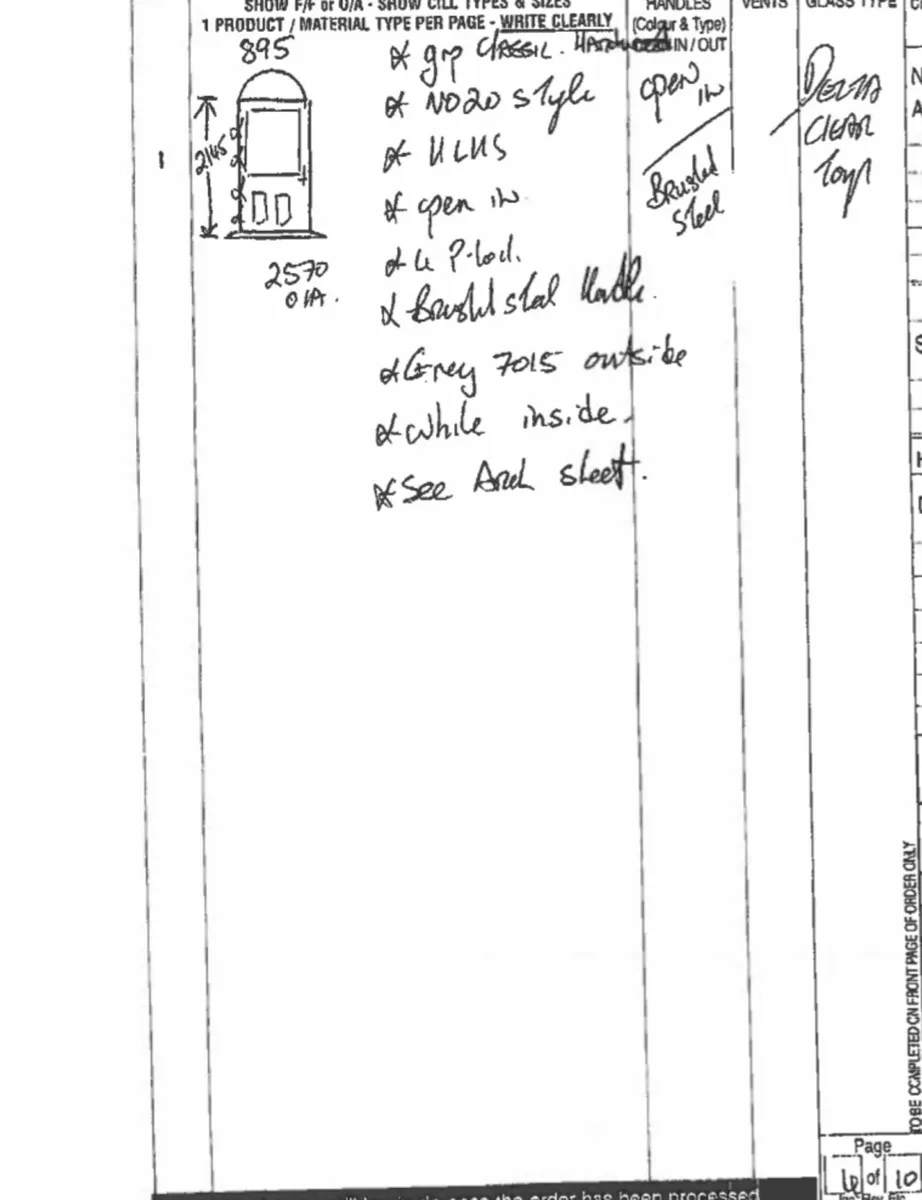 SHOW F/F or O/A - SHOW CILL TYPES & SIZES
1 PRODUCT / MATERIAL TYPE PER PAGE - WRITE CLEARLY
HANDLES
(Colour & Type)
IN / OUT
VENTS
GLASS TYPE
1
895
2145
2570
O/A.
* grp Classic.
* NO20 style
* HLHS
* open in
* Le P-lock.
* Brushed steel Handle.
* Grey 7015 outside
* white inside.
* See Arch sheet.
open
in
Brushed
Steel
DELTA
CLEAR
Toys
TO BE COMPLETED ON FRONT PAGE OF ORDER ONLY
Page
6 of 10
the order has been processed